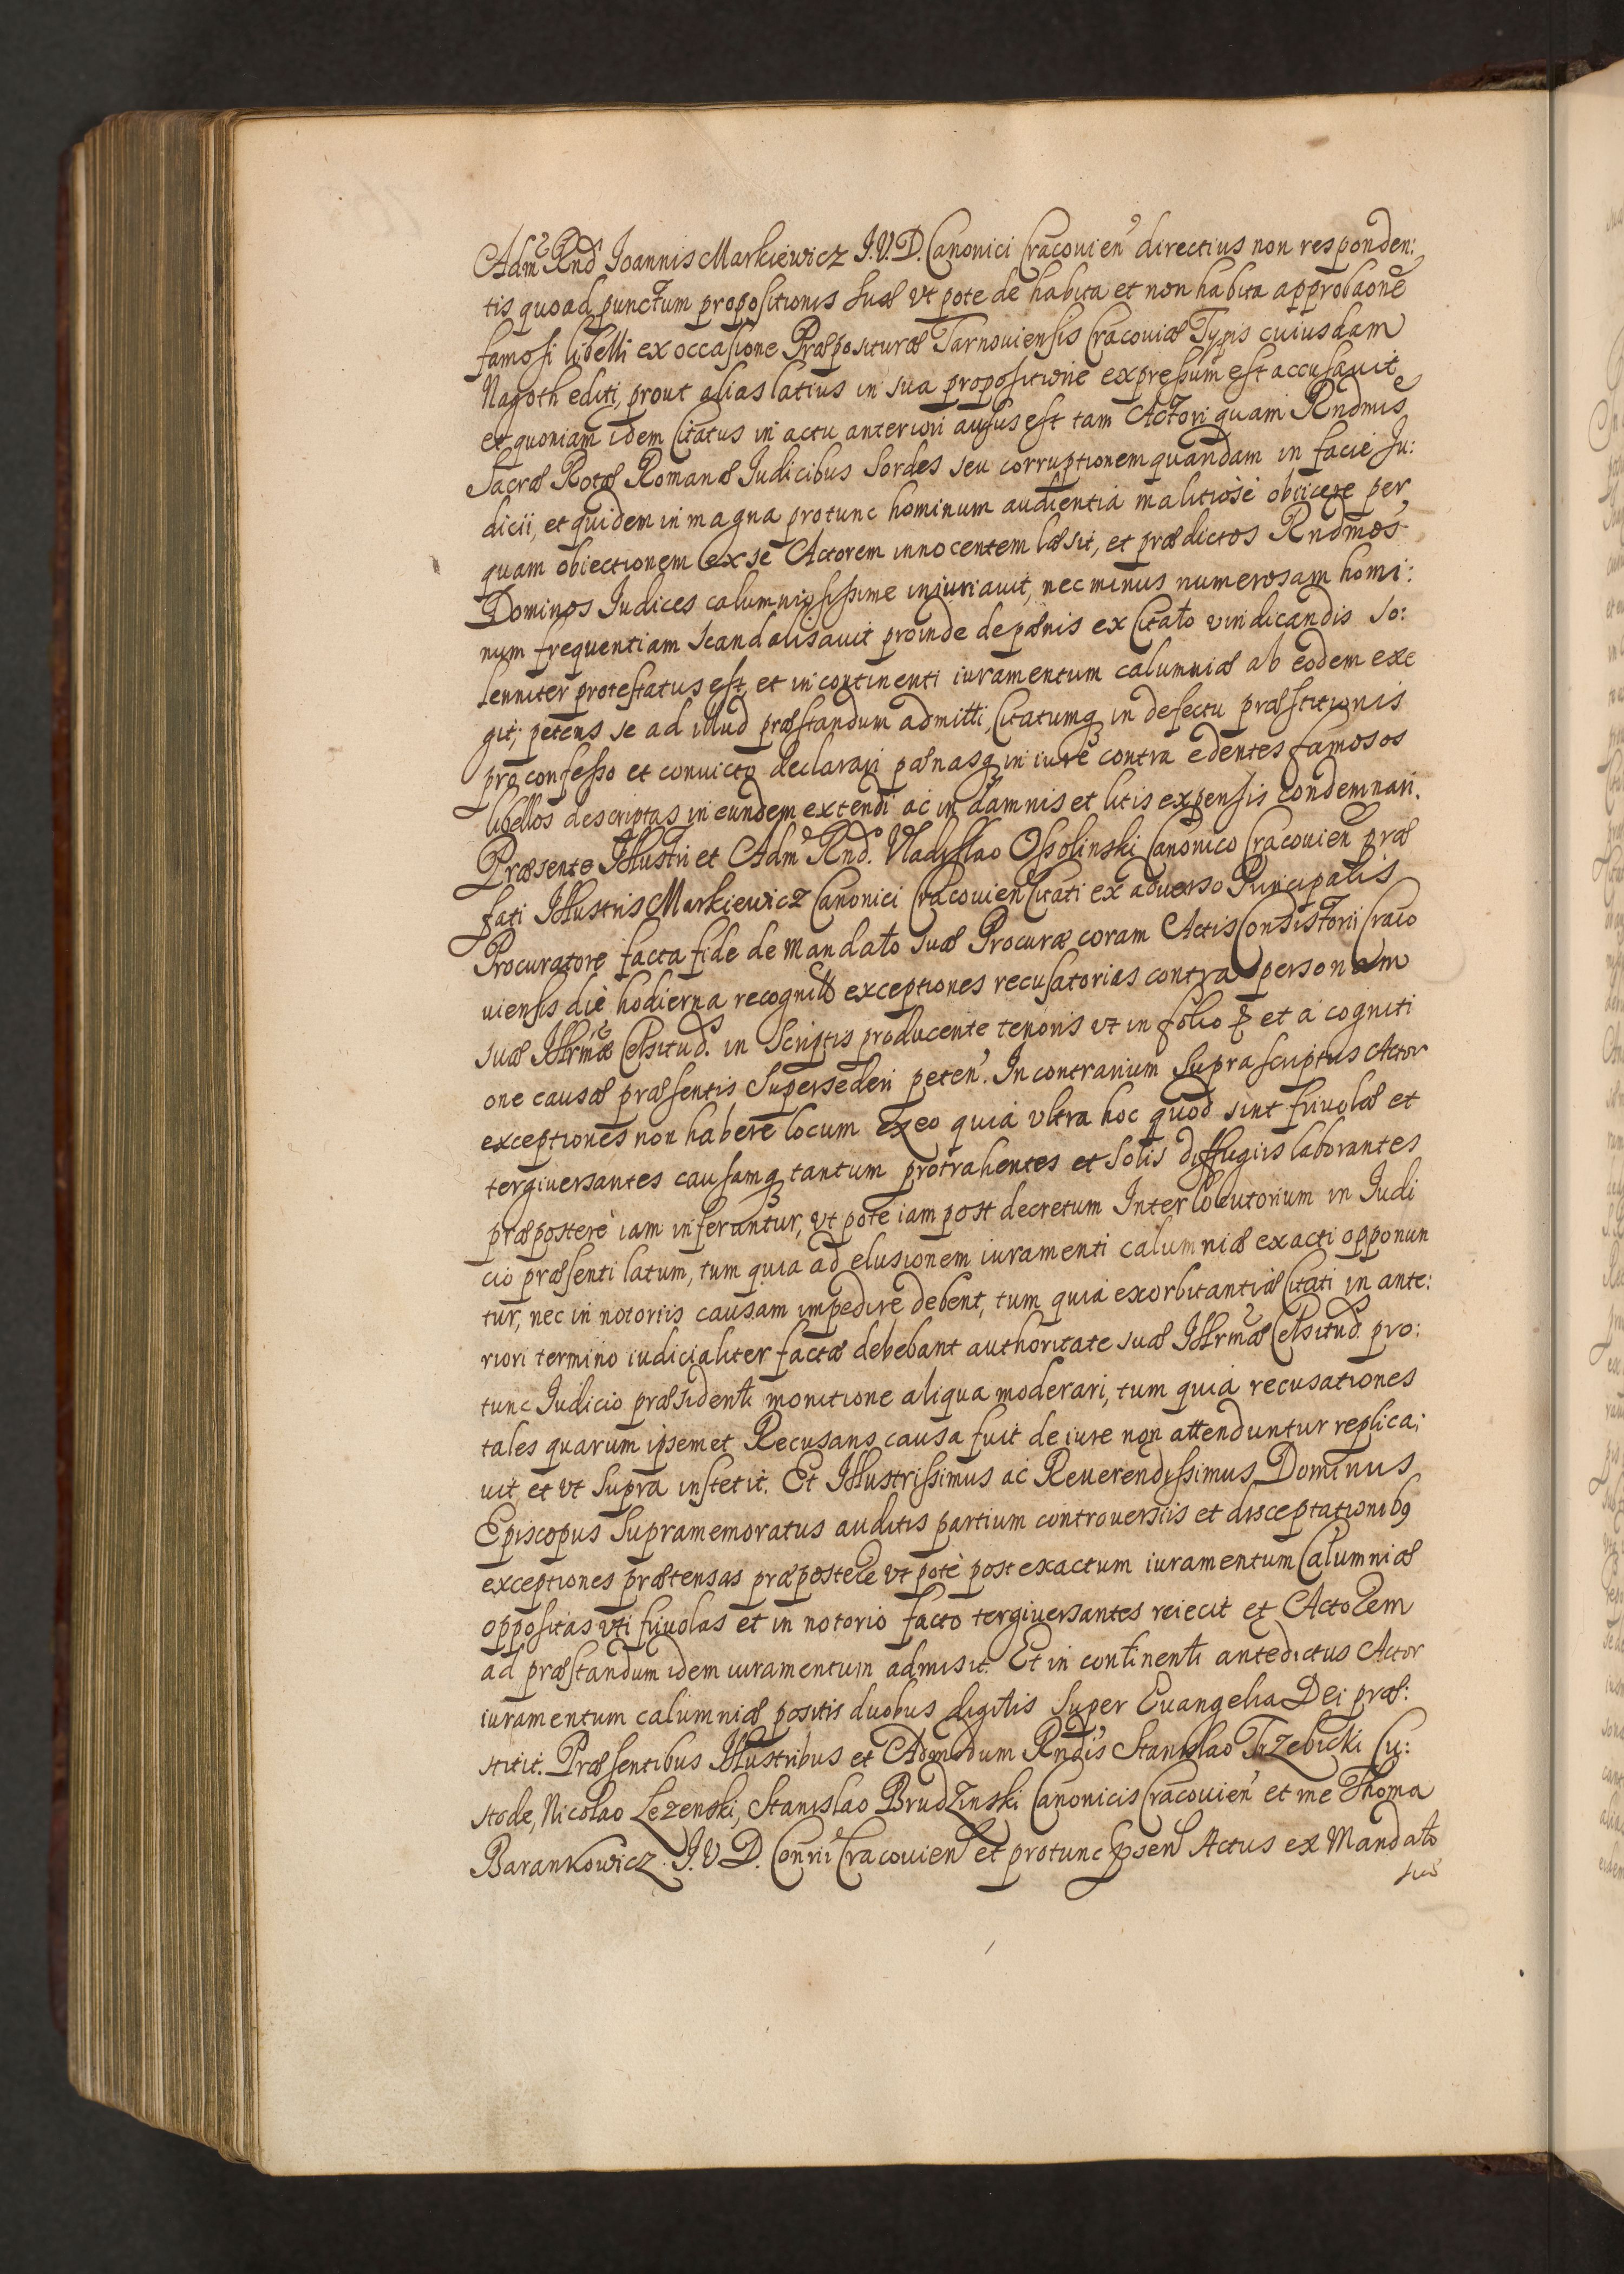 Adm Rnd Joannis Markiewicz J.V.D. Canonici Cracouien directius non responden:
tis quoad punctum propositionis suæ vt pote de habita et non habita approbaone
famosi libelli ex occasione Præposituræ Tarnouiensis Cracouiæ Typis cuiusdam
Nagoth editi, prout alias latius in sua propositione expressum est accusauit
et quoniam idem Citatus in actu anteriori ausus est tam Actori quam Rndmis
Sacræ Rotæ Romanæ Judicibus Sordes seu corruptionem quandam in facie Ju:
dicii, et quidem in magna protunc hominum audientia malitiosè obiicere per
quam obiectionem ex se Actorem innocentem læsit, et prædictos Rndmos
Dominos Judices calumniosissime iniuriauit, nec minus numerosam homi:
num frequentiam scandalisauit proinde de pænis ex Citato vindicandis so:
lenniter protestatus est, et in continenti iuramentum calumniæ ab eodem exe
git, petens se ad illud præstandum admitti, Citatumq in defectu præstitionis
pro confesso et conuicto declarari pænasq in iure contra edentes famosos
libellos descriptas in eundem extendi ac in damnis et litis expensis condemnari.
Præsente Illustri et Adm Rnd. Vladislao Ossolinski Canonico Cracouien præ
fati Illustris Markiewicz Canonici Cracouien Citati ex aduerso Principalis
Procuratore facta fide de mandato suæ Procuræ coram Actis Consistorii Craco
uiensis die hodierna recognito exceptiones recusatorias contra personam
suæ Illrmæ Celsitud. in Scriptis producente tenoris vt in folio et a cogniti
one causæ præsentis Supersederi peten. In contrarium Suprascriptus Actor
exceptiones non habere locum ex eo quia vltra hoc quod sint friuolæ et
tergiuersantes causamq tantum protrahentes et Solis diffugiis laborantes
præposterè iam inferuntur, vt pote iam post decretum Interlocutorium in Judi
cio præsenti latum, tum quia ad elusionem iuramenti calumniæ exacti opponun
tur, nec in notoriis causam impedire debent, tum quia exorbitantiæ Citati in ante:
riori termino iudicialiter factæ debebant authoritate suæ Illrmæ Celsitud. pro:
tunc Judicio præsidenti monitione aliqua moderari, tum quia recusationes
tales quarum ipsemet Recusans causa fuit de iure non attenduntur replica:
uit et vt supra institit. Et Illustrissimus ac Reuerendissimus Dominus
Episcopus Supramemoratus auditis partium controuersiis et disceptationibg
exceptiones prætensas præpostere vt potè post exactum iuramentum Calumniæ
oppositas vti friuolas et in notorio facto tergiuersantes reiecit et Actorem
ad præstandum idem iuramentum admisit. Et in continenti antedictus Actor
iuramentum calumniæ positis duobus digitis Super Euangelia Dei præ:
stitit. Præsentibus Illustribus et Admodum Rndis Stanislao Trzebicki Cu:
stode, Nicolao Lezenski, Stanislao Brudzinski Canonicis Cracouien et me Thoma
Barankowicz. J.V.D. Conrii Cracouien et protunc psen Actus ex Mandato
suæ